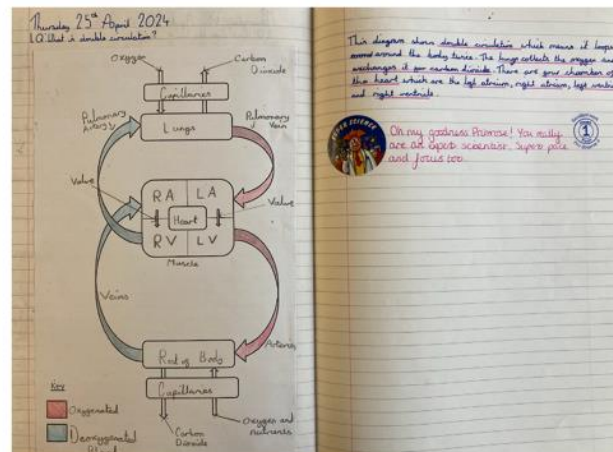 Thursday 25th April 2024
LQ: What is double circulation?
Oxygen
Carbon
Dioxide
Capillaries
Pulmonary
Artery
Lungs
Pulmonary
Vein
Valve
RA LA
Heart
Valve
RV LV
Muscle
Veins
Arteries
Rest of Body
Capillaries
Key
Oxygenated
Deoxygenated
Blood
Carbon
Dioxide
Oxygen and
nutrients
This diagram shows double circulation which means it
around the body twice. The lungs collects the oxygen and
exchanges it for carbon dioxide. There are four chambers of
the heart which are the left atrium, right atrium, left
and right ventricle.
SUPER SCIENCE
Oh my goodness Primrose! You really
are an expert scientist. Super pace
and focus too.
1